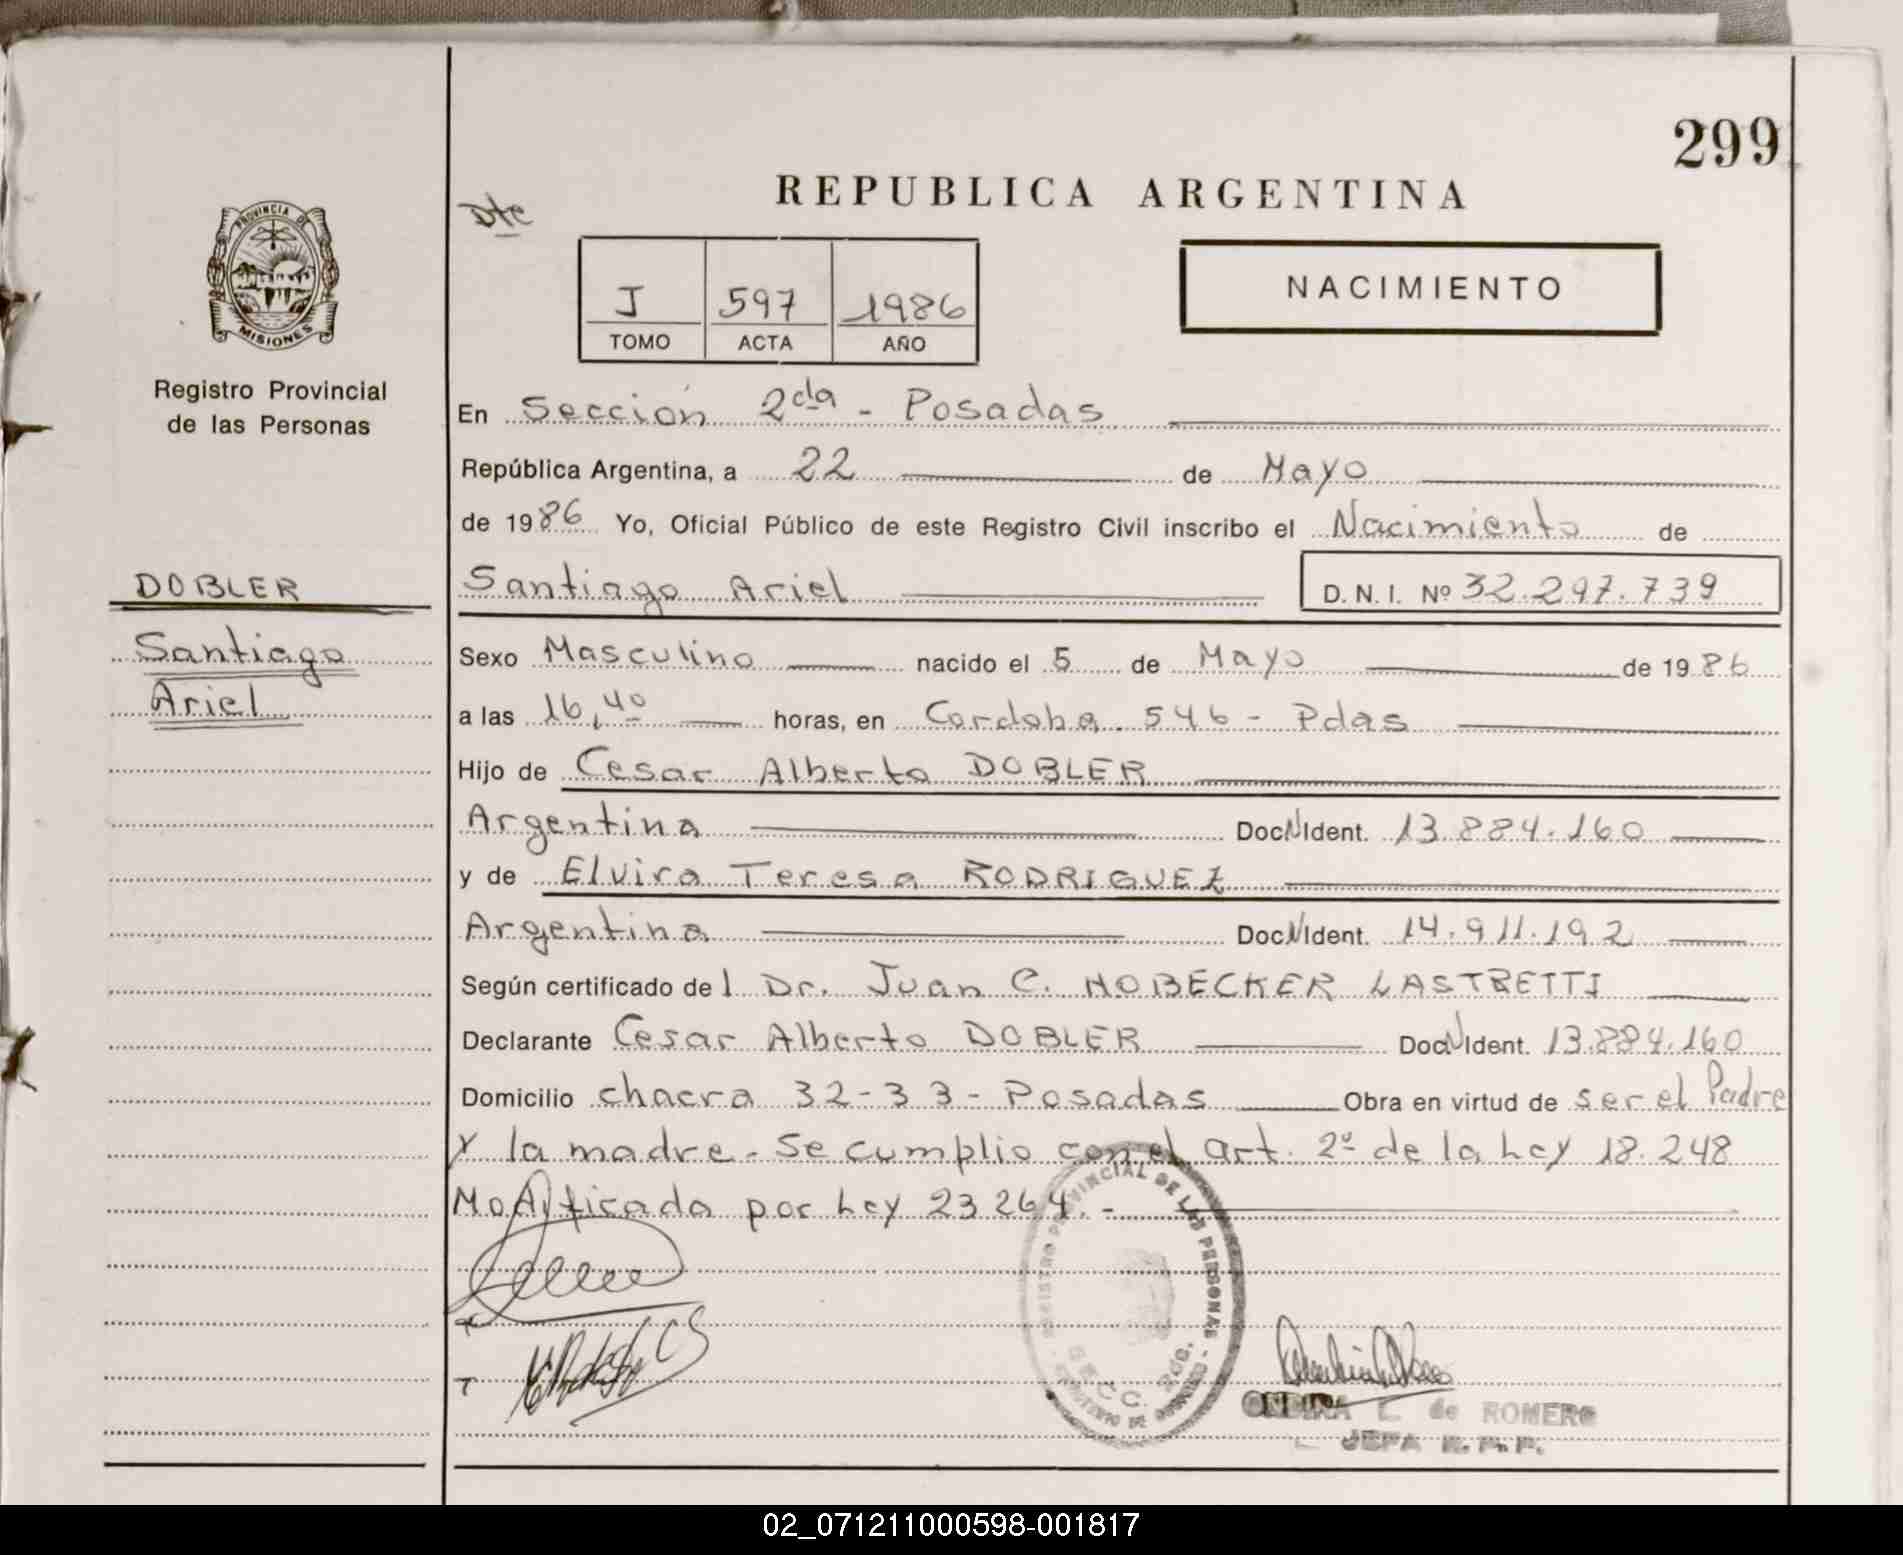 299
REPUBLICA ARGENTINA
Dte
PROVINCIA DE
MISIONES
Registro Provincial
de las Personas
J 597 1986
TOMO ACTA AÑO
NACIMIENTO
En Sección 2da - Posadas
República Argentina, a 22 de Mayo
de 1986 Yo, Oficial Público de este Registro Civil inscribo el Nacimiento de
DOBLER
Santiago Ariel
D. N. I. Nº 32.297.739
Santiago
Ariel
Sexo Masculino nacido el 5 de Mayo de 1986
a las 16,40 horas, en Cordoba 546 - Pdas
Hijo de Cesar Alberto DOBLER
Argentina Doc N Ident. 13.884.160
y de Elvira Teresa RODRIGUEZ
Argentina Doc N Ident. 14.911.192
Según certificado del Dr. Juan C. NOBECKER LASTRETTI
Declarante Cesar Alberto DOBLER Doc N Ident. 13.884.160
Domicilio chacra 32-33 - Posadas Obra en virtud de ser el Padre
y la madre - Se cumplio con el art. 2º de la Ley 18.248
Modificada por Ley 23264. -
REGISTRO PROVINCIAL DE LAS PERSONAS
SECC. 2da.
MINISTERIO DE GOBIERNO
ONDINA L. de ROMERO
JEFA R. P. P.
02_071211000598-001817